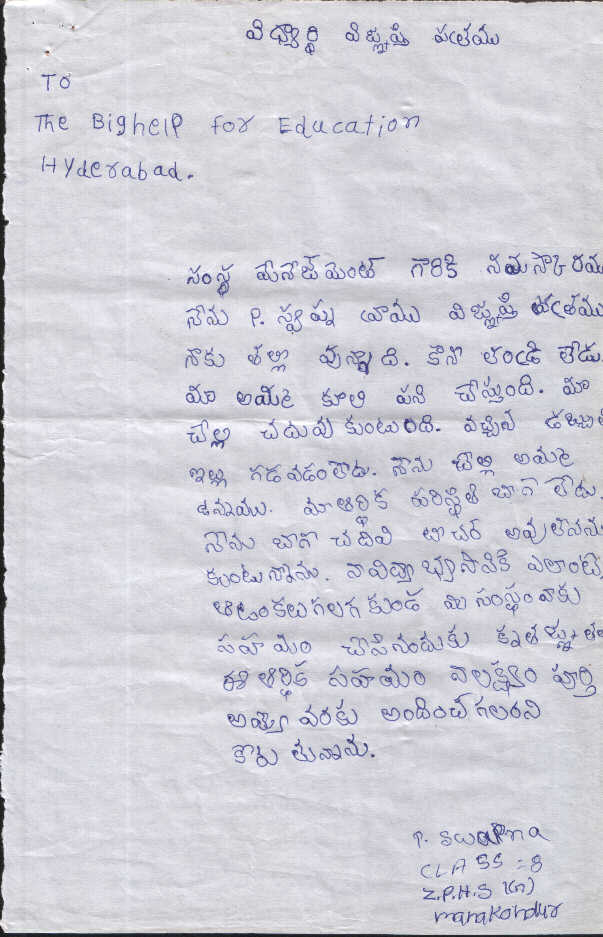 విద్యార్థి విజ్ఞప్తి పత్రము
TO
The Bighelp for Education
Hyderabad.
సంస్థ మేనేజ్‌మెంట్ గారికి నమస్కారము
నేను P. స్వప్న వ్రాయు విజ్ఞప్తి పత్రము
నాకు తల్లి వున్నాది. కానీ తండ్రి లేడు.
మా అమ్మ కూలి పని చేస్తుంది. మా
చెల్లి చదువుకుంటుంది. వచ్చిన డబ్బు
ఇల్లు గడవడంలేదు. నేను చెల్లి అమ్మ
ఉన్నాము. మా ఆర్థిక పరిస్థితి బాగా లేదు.
నేను బాగా చదివి టీచర్ అవ్వాలను
కుంటున్నాను. నా విద్యాభ్యాసానికి ఎలాంటి
ఆటంకలు గలగకుండ మీ సంస్థం నాకు
సహయం చేసినందుకు కృతజ్ఞుత
ఈ ఆర్థిక సహయం నాలక్ష్యం పూర్తి
అయ్యే వరకు అందించగలరని
కోరుతున్నాను.
P. Swapna
CLASS : 8
Z.P.H.S (n)
manakondur